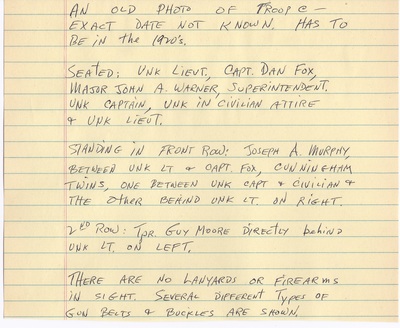 AN OLD PHOTO OF TROOP C -
EXACT DATE NOT KNOWN. HAS TO
BE IN the 1920's.
SEATED: UNK LIEUT., CAPT. DAN FOX,
MAJOR JOHN A. WARNER, SUPERINTENDENT.
UNK CAPTAIN, UNK IN CIVILIAN ATTIRE
& UNK LIEUT.
STANDING IN FRONT ROW: JOSEPH A. MURPHY,
BETWEEN UNK LT & CAPT. FOX, CUNNINGHAM
TWINS, ONE BETWEEN UNK CAPT & CIVILIAN &
THE OTHER BEHIND UNK LT. ON RIGHT.
2ED ROW: TPR. GUY MOORE DIRECTLY behind
UNK LT. ON LEFT.
THERE ARE NO LANYARDS OR FIREARMS
IN SIGHT. SEVERAL DIFFERENT TYPES OF
GUN BELTS & BUCKLES ARE SHOWN.